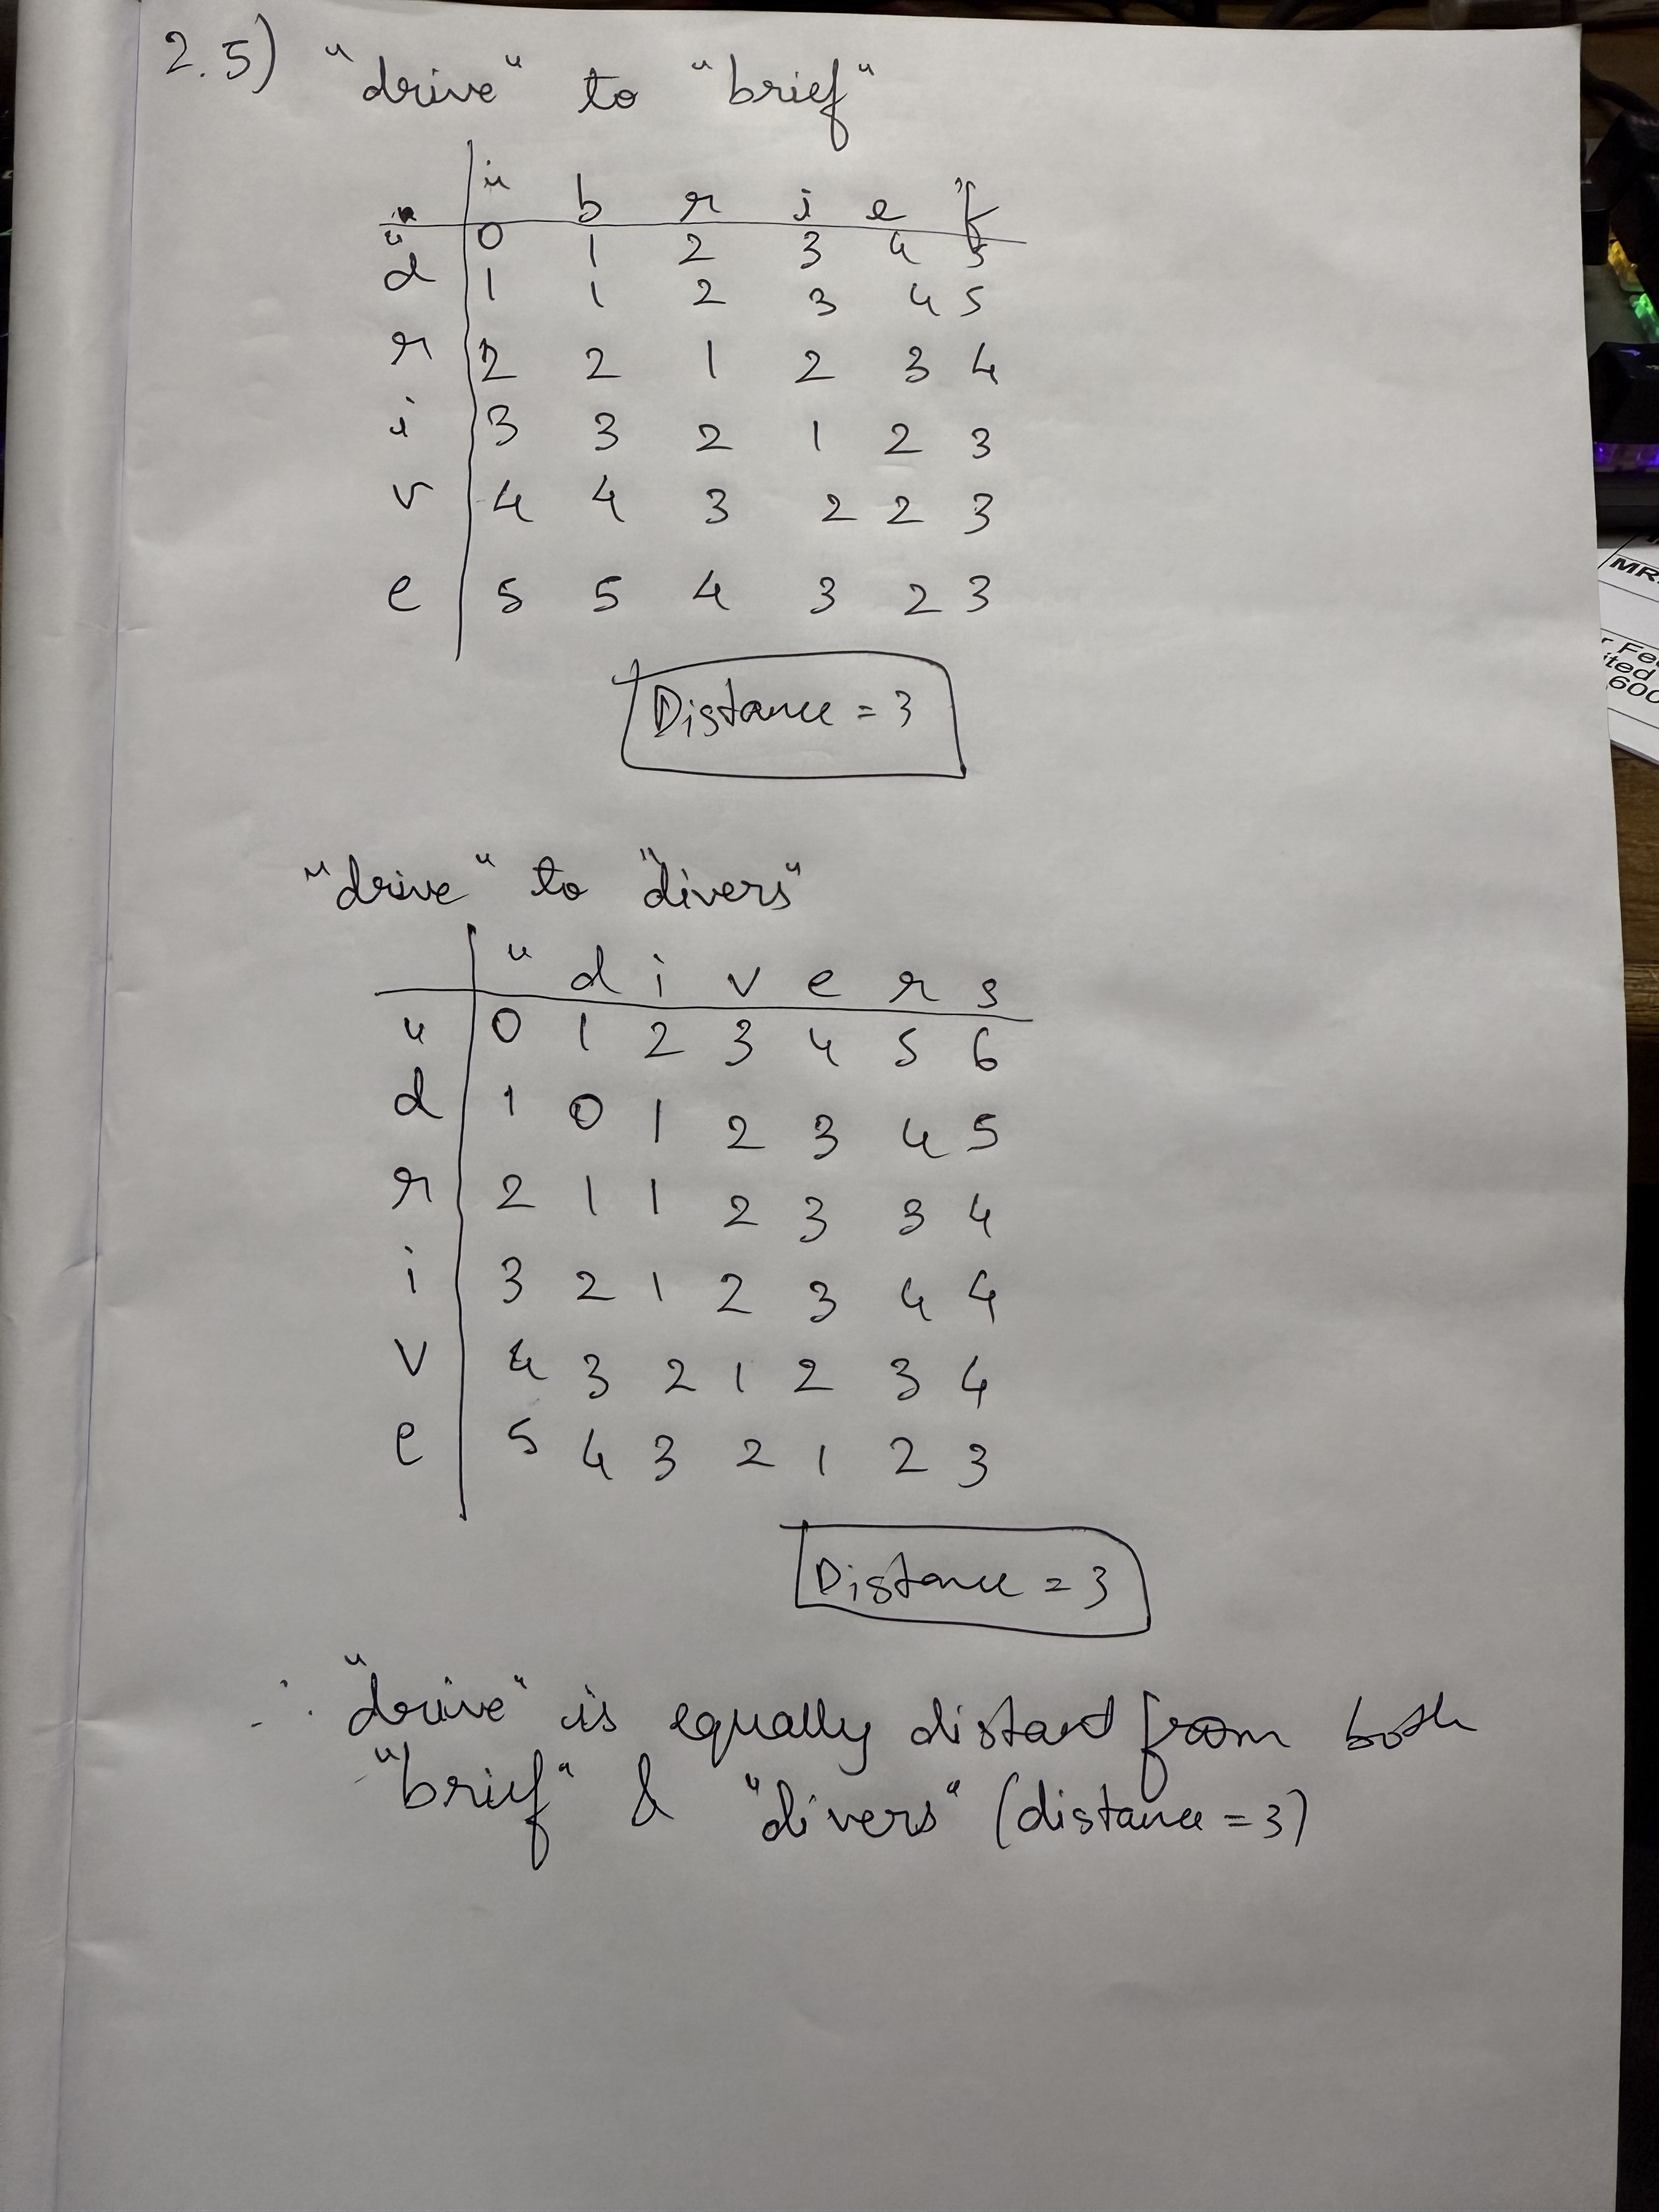 2.5) "drive" to "brief"
" b r i e f
" 0 1 2 3 4 5
d 1 1 2 3 4 5
r 2 2 1 2 3 4
i 3 3 2 1 2 3
v 4 4 3 2 2 3
e 5 5 4 3 2 3
Distance = 3
"drive" to "divers"
" d i v e r s
" 0 1 2 3 4 5 6
d 1 0 1 2 3 4 5
r 2 1 1 2 3 3 4
i 3 2 1 2 3 4 4
v 4 3 2 1 2 3 4
e 5 4 3 2 1 2 3
Distance = 3
∴ "drive" is equally distant from both
"brief" & "divers" (distance = 3)
MR
Fe
ited
600